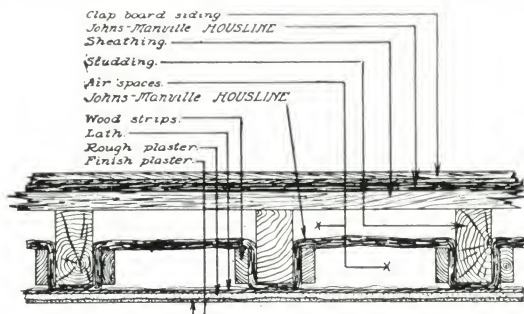 Clap board siding
Johns-Manville HOUSLINE
Sheathing.
Studding.
Air spaces.
Johns-Manville HOUSLINE
Wood strips.
Lath.
Rough plaster.
Finish plaster.